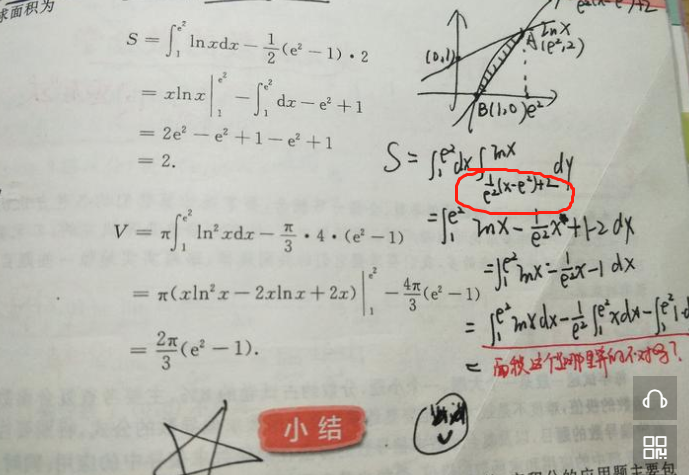 球面积为
S = ∫₁^{e²} lnxdx − 1/2 (e² − 1) · 2
= xlnx |₁^{e²} − ∫₁^{e²} dx − e² + 1
= 2e² − e² + 1 − e² + 1
= 2.
V = π∫₁^{e²} ln²xdx − π/3 · 4 · (e² − 1)
= π(xln²x − 2xlnx + 2x) |₁^{e²} − 4π/3 (e² − 1)
= 2π/3 (e² − 1).
小结
lnx
A
(e²,2)
(0,1)
B(1,0) e²
S = ∫₁^{e²} dx ∫_{1/e²(x−e²)+2}^{lnx} dy
= ∫₁^{e²} lnx − 1/e² x + 1 − 2 dx
= ∫₁^{e²} lnx − 1/e² x − 1 dx
= ∫₁^{e²} lnxdx − 1/e² ∫₁^{e²} xdx − ∫₁^{e²} 1
=